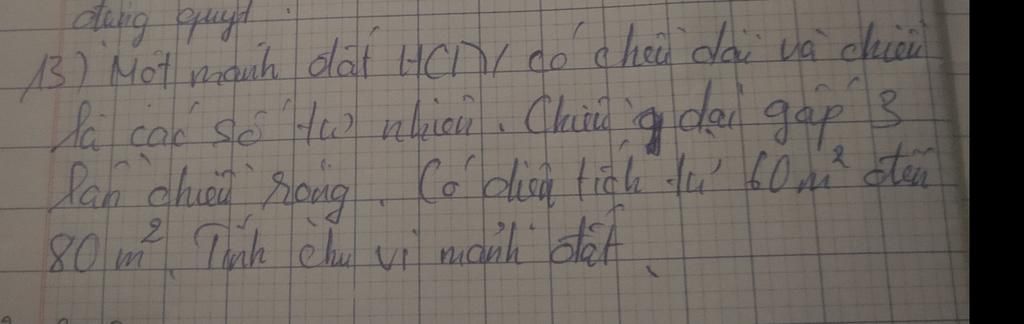 dụng quyt.
13) Một mảnh đất HCN có chều dài và chiều
là các số tự nhiên. Chiều dài gấp 3
lần chiều rộng. Có diện tích từ 60 m² đến
80 m². Tính chu vi mảnh đất.